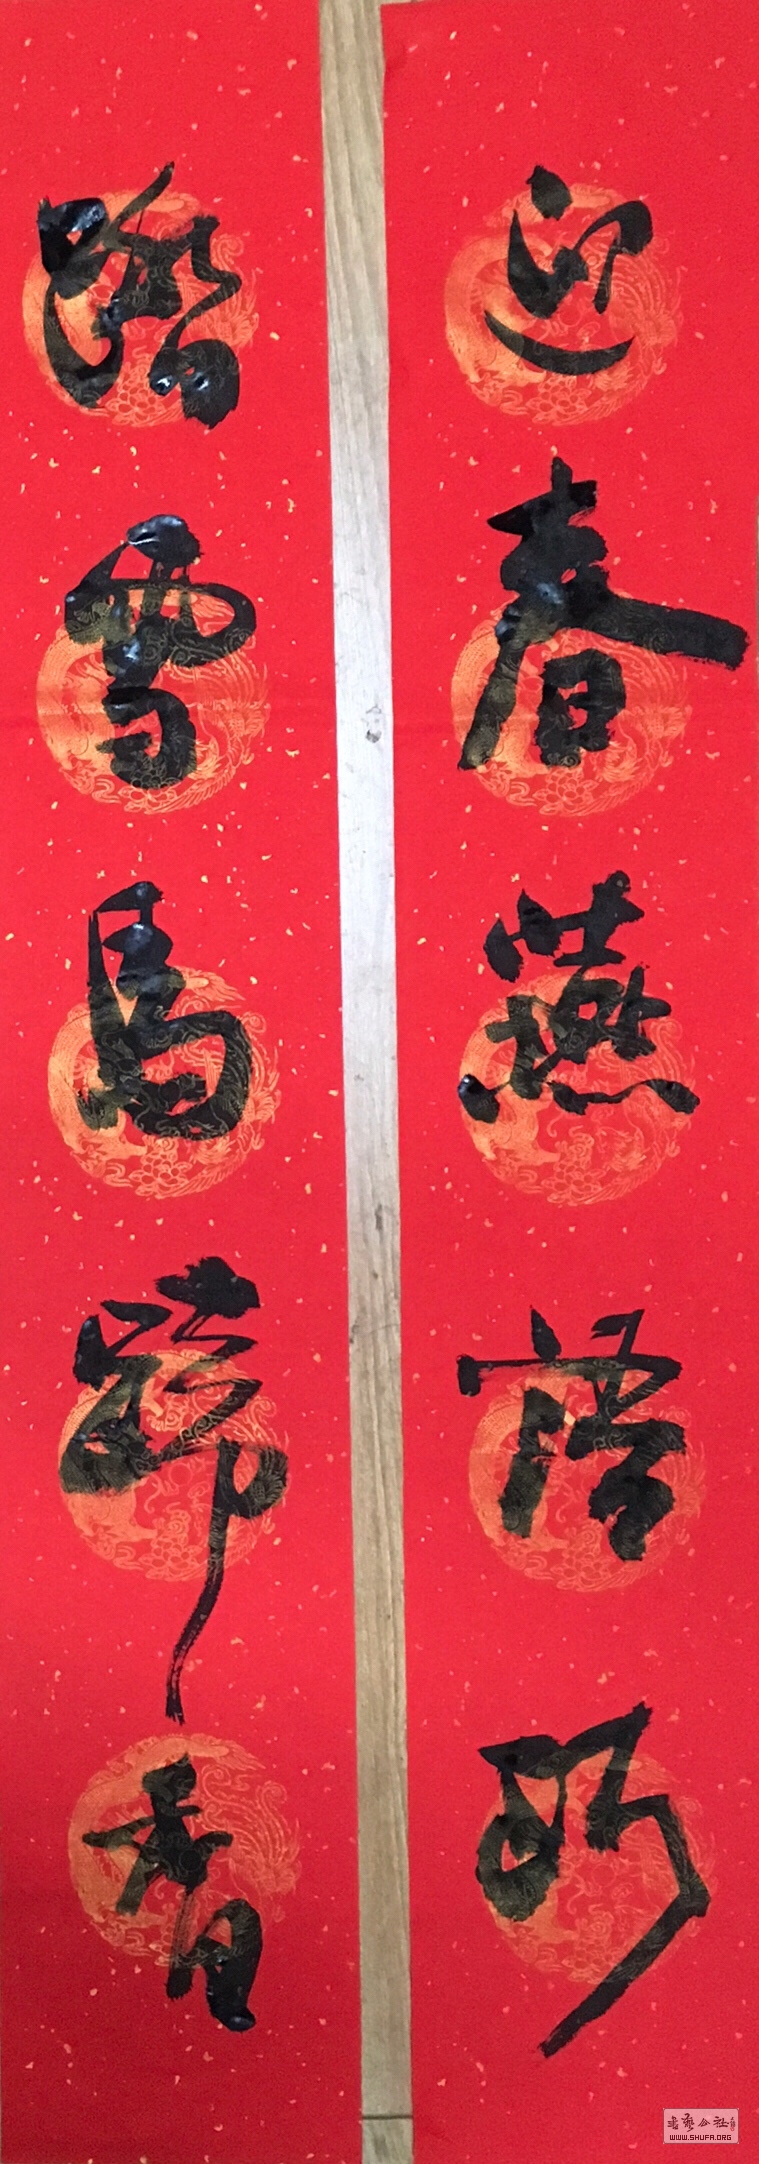 迎春燕語
踏雪馬蹄香
書藝公社
WWW.SHUFA.ORG